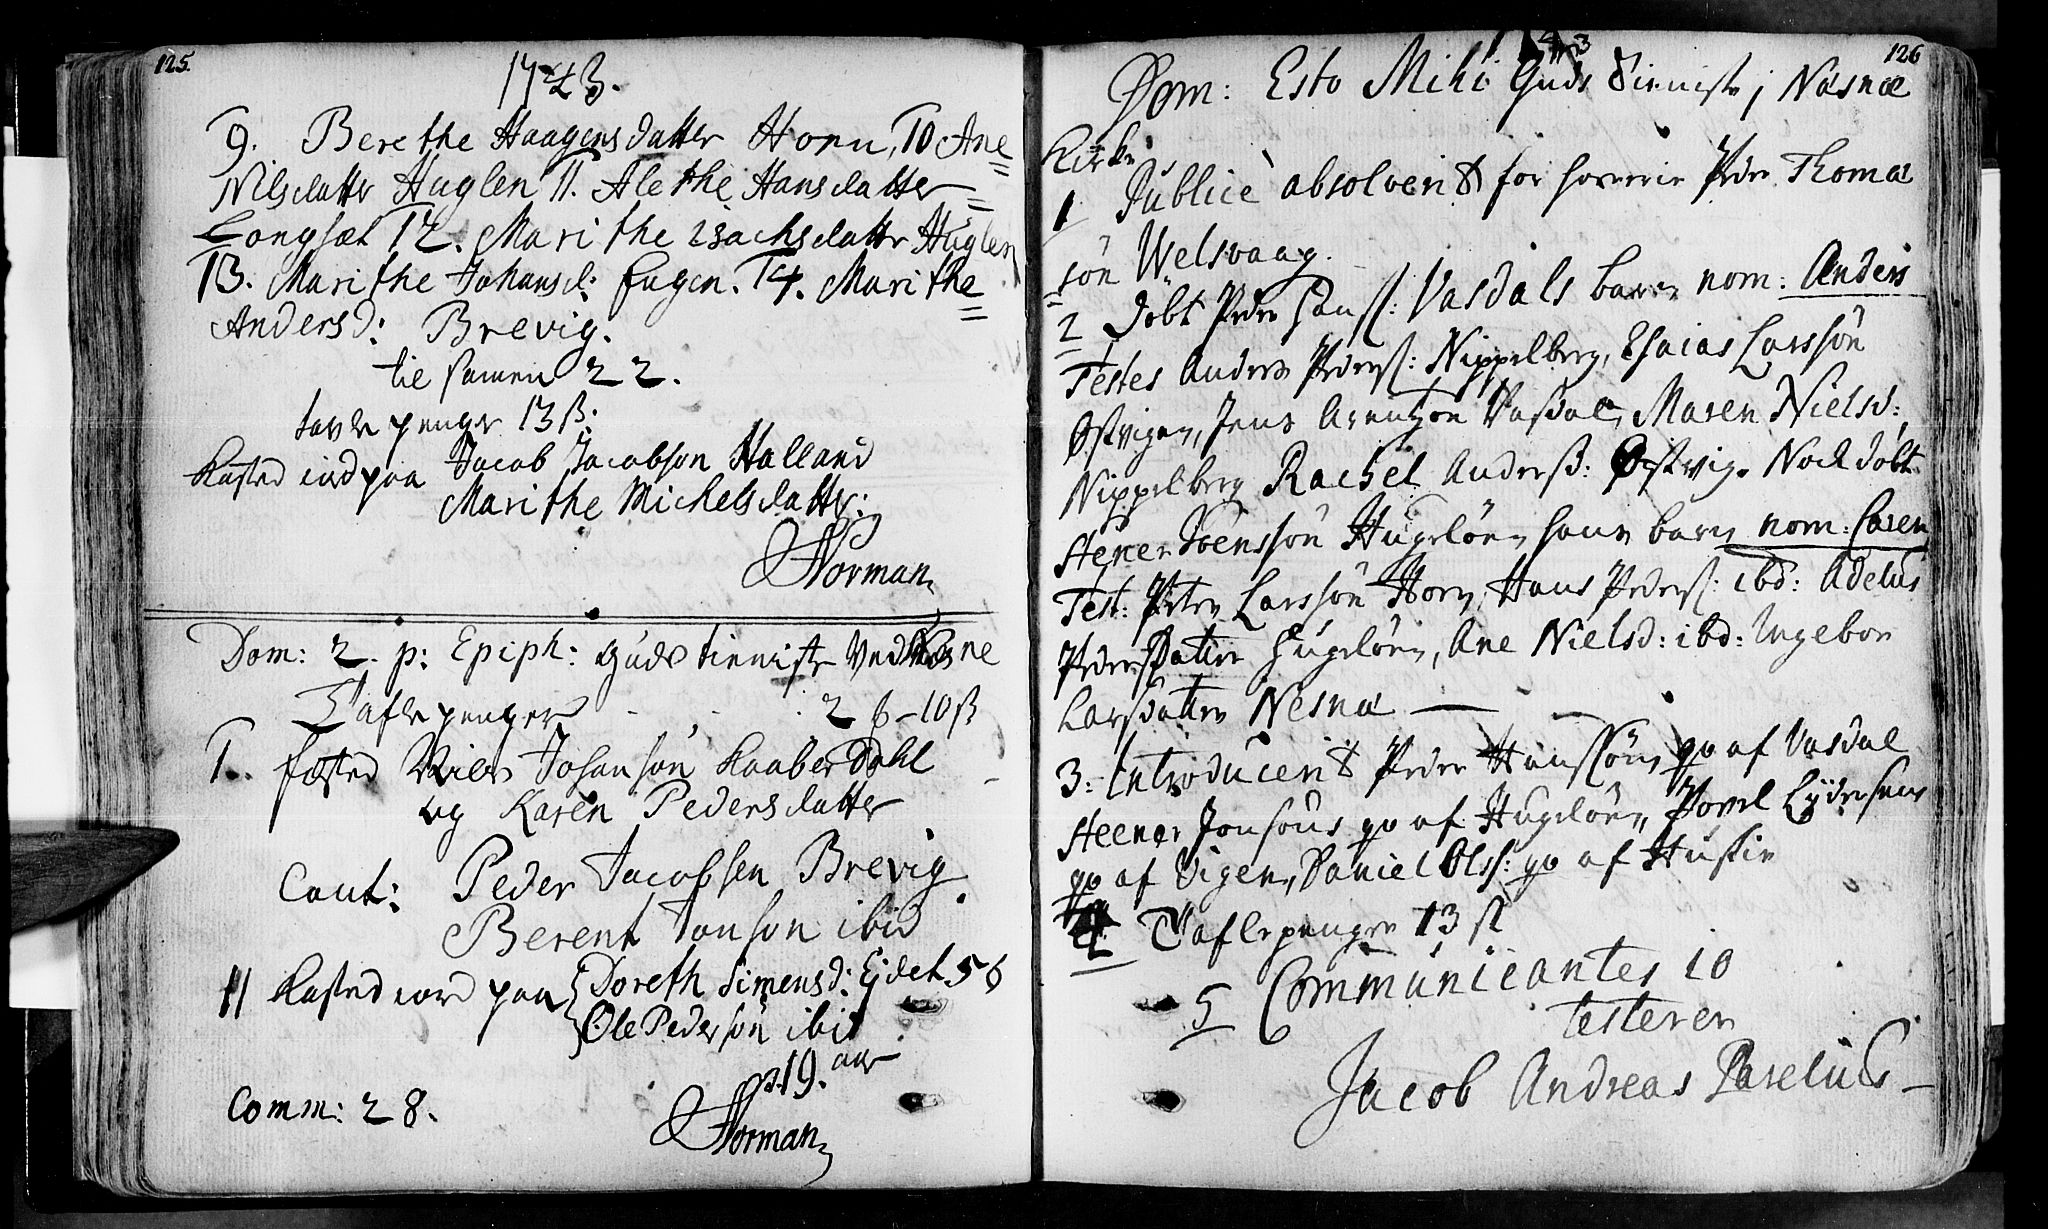 125.
1743.
9. Berethe Haagensdatter Horn, 10 Ane
Nilsdatter Huglen 11. Alethe Hansdatter
Longset 12. Marithe Isachsdattr Huglen
13. Marithe Johansd: Eugen. 14. Marithe
Andersd: Brevig.
til samen 22.
tavle penger 13 ß:
Kasted iord paa Jacob Jacobson Halland
Marithe Michelsdatter:
Norman
Dom: 2. p: Epiph: Guds tieniste Ved Nesne
Tafle penger - - - 2 ₰ - 10 ß
1. fæsted Niels Johanson Kaaberdahl
og Karen Pedersdatter
Caut: Peder Jacobsen Brevig
Berent Jonson ibid.
11 Kasted iord paa Doreth Simensd: Ejdet 56
Ole Pederson ibid
19. aar
Comm: 28.
Norman
43
126
Dom: Esto Mihi Guds tieniste i Næsnæ
Kirke
1 Publicè absolverit for horerie Peder Thomæ
sön Welsvaag.
2 döbt Peder Hanss: Vasdals barn nom: Anders
Testes Anders Peders: Nippelberg, Esaias Larssön
Østvigen, Jens Arentzon Vasdal, Maren Nielsd:
Nippelberg Rachel Anderß: Østvig. Nock döbt
Stener Joenssön Hugelöen hans barn nom: Caren
Test: Peter Larssön Horn, Hans Peders: ibd: Adelus
Pedersdatter Hugelöen, Ane Nielsd: ibd: Ingebor
Larsdatter Nesnæ
3: Introducerit Peder Hanssöns qv af Vasdal
Steener Jonsöns qv af Hugelöen, Povel Lydersens
qv af Vigen, Daniel Olss: qv af Hustin
4 Taflepenger 13 ß
5 Communicantes 10
testerer
Jacob Andreas Parelius